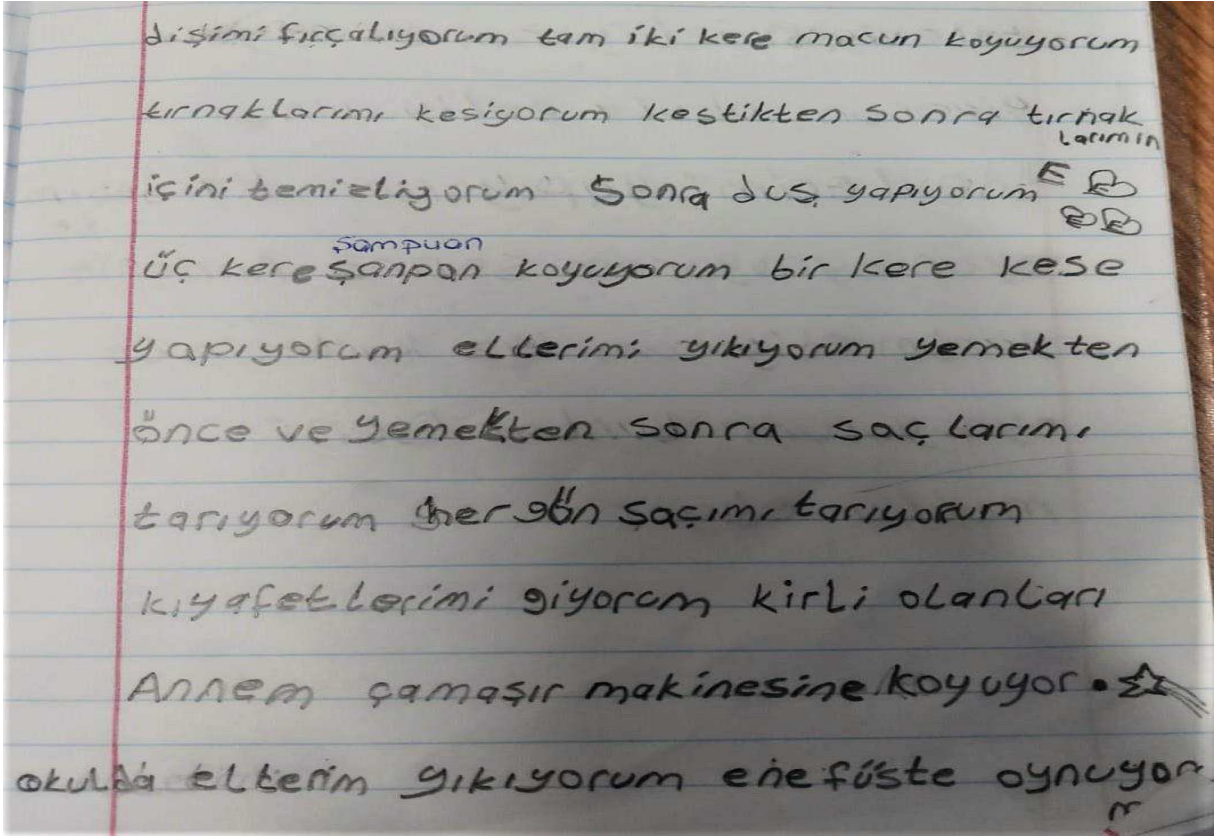 dişimi fırçalıyorum tam iki kere macun koyuyorum
tırnaklarımı kesiyorum kestikten sonra tırnak
larımın
içini temizliyorum sonra duş yapıyorum
şampuan
üç kere şanpan koyuyorum bir kere kese
yapıyorum ellerimi yıkıyorum yemekten
önce ve yemekten sonra saçlarımı
tarıyorum her gün saçımı tarıyorum
kıyafetlerimi giyorum kirli olanları
Annem çamaşır makinesine koyuyor.
okulda ellerim yıkıyorum enefüste oynuyor